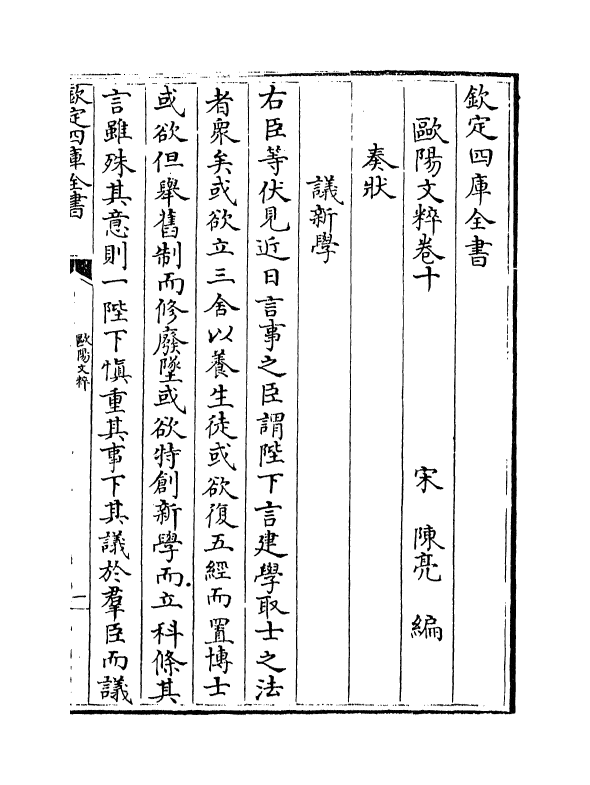 欽定四庫全書
歐陽文粹卷十
宋 陳亮 編
奏狀
議新學
右臣等伏見近日言事之臣謂陛下言建學取士之法
者衆矣或欲立三舍以養生徒或欲復五經而置博士
或欲但舉舊制而修廢墜或欲特創新學而立科條其
言雖殊其意則一陛下慎重其事下其議於羣臣而議
欽定四庫全書
歐陽文粹
一